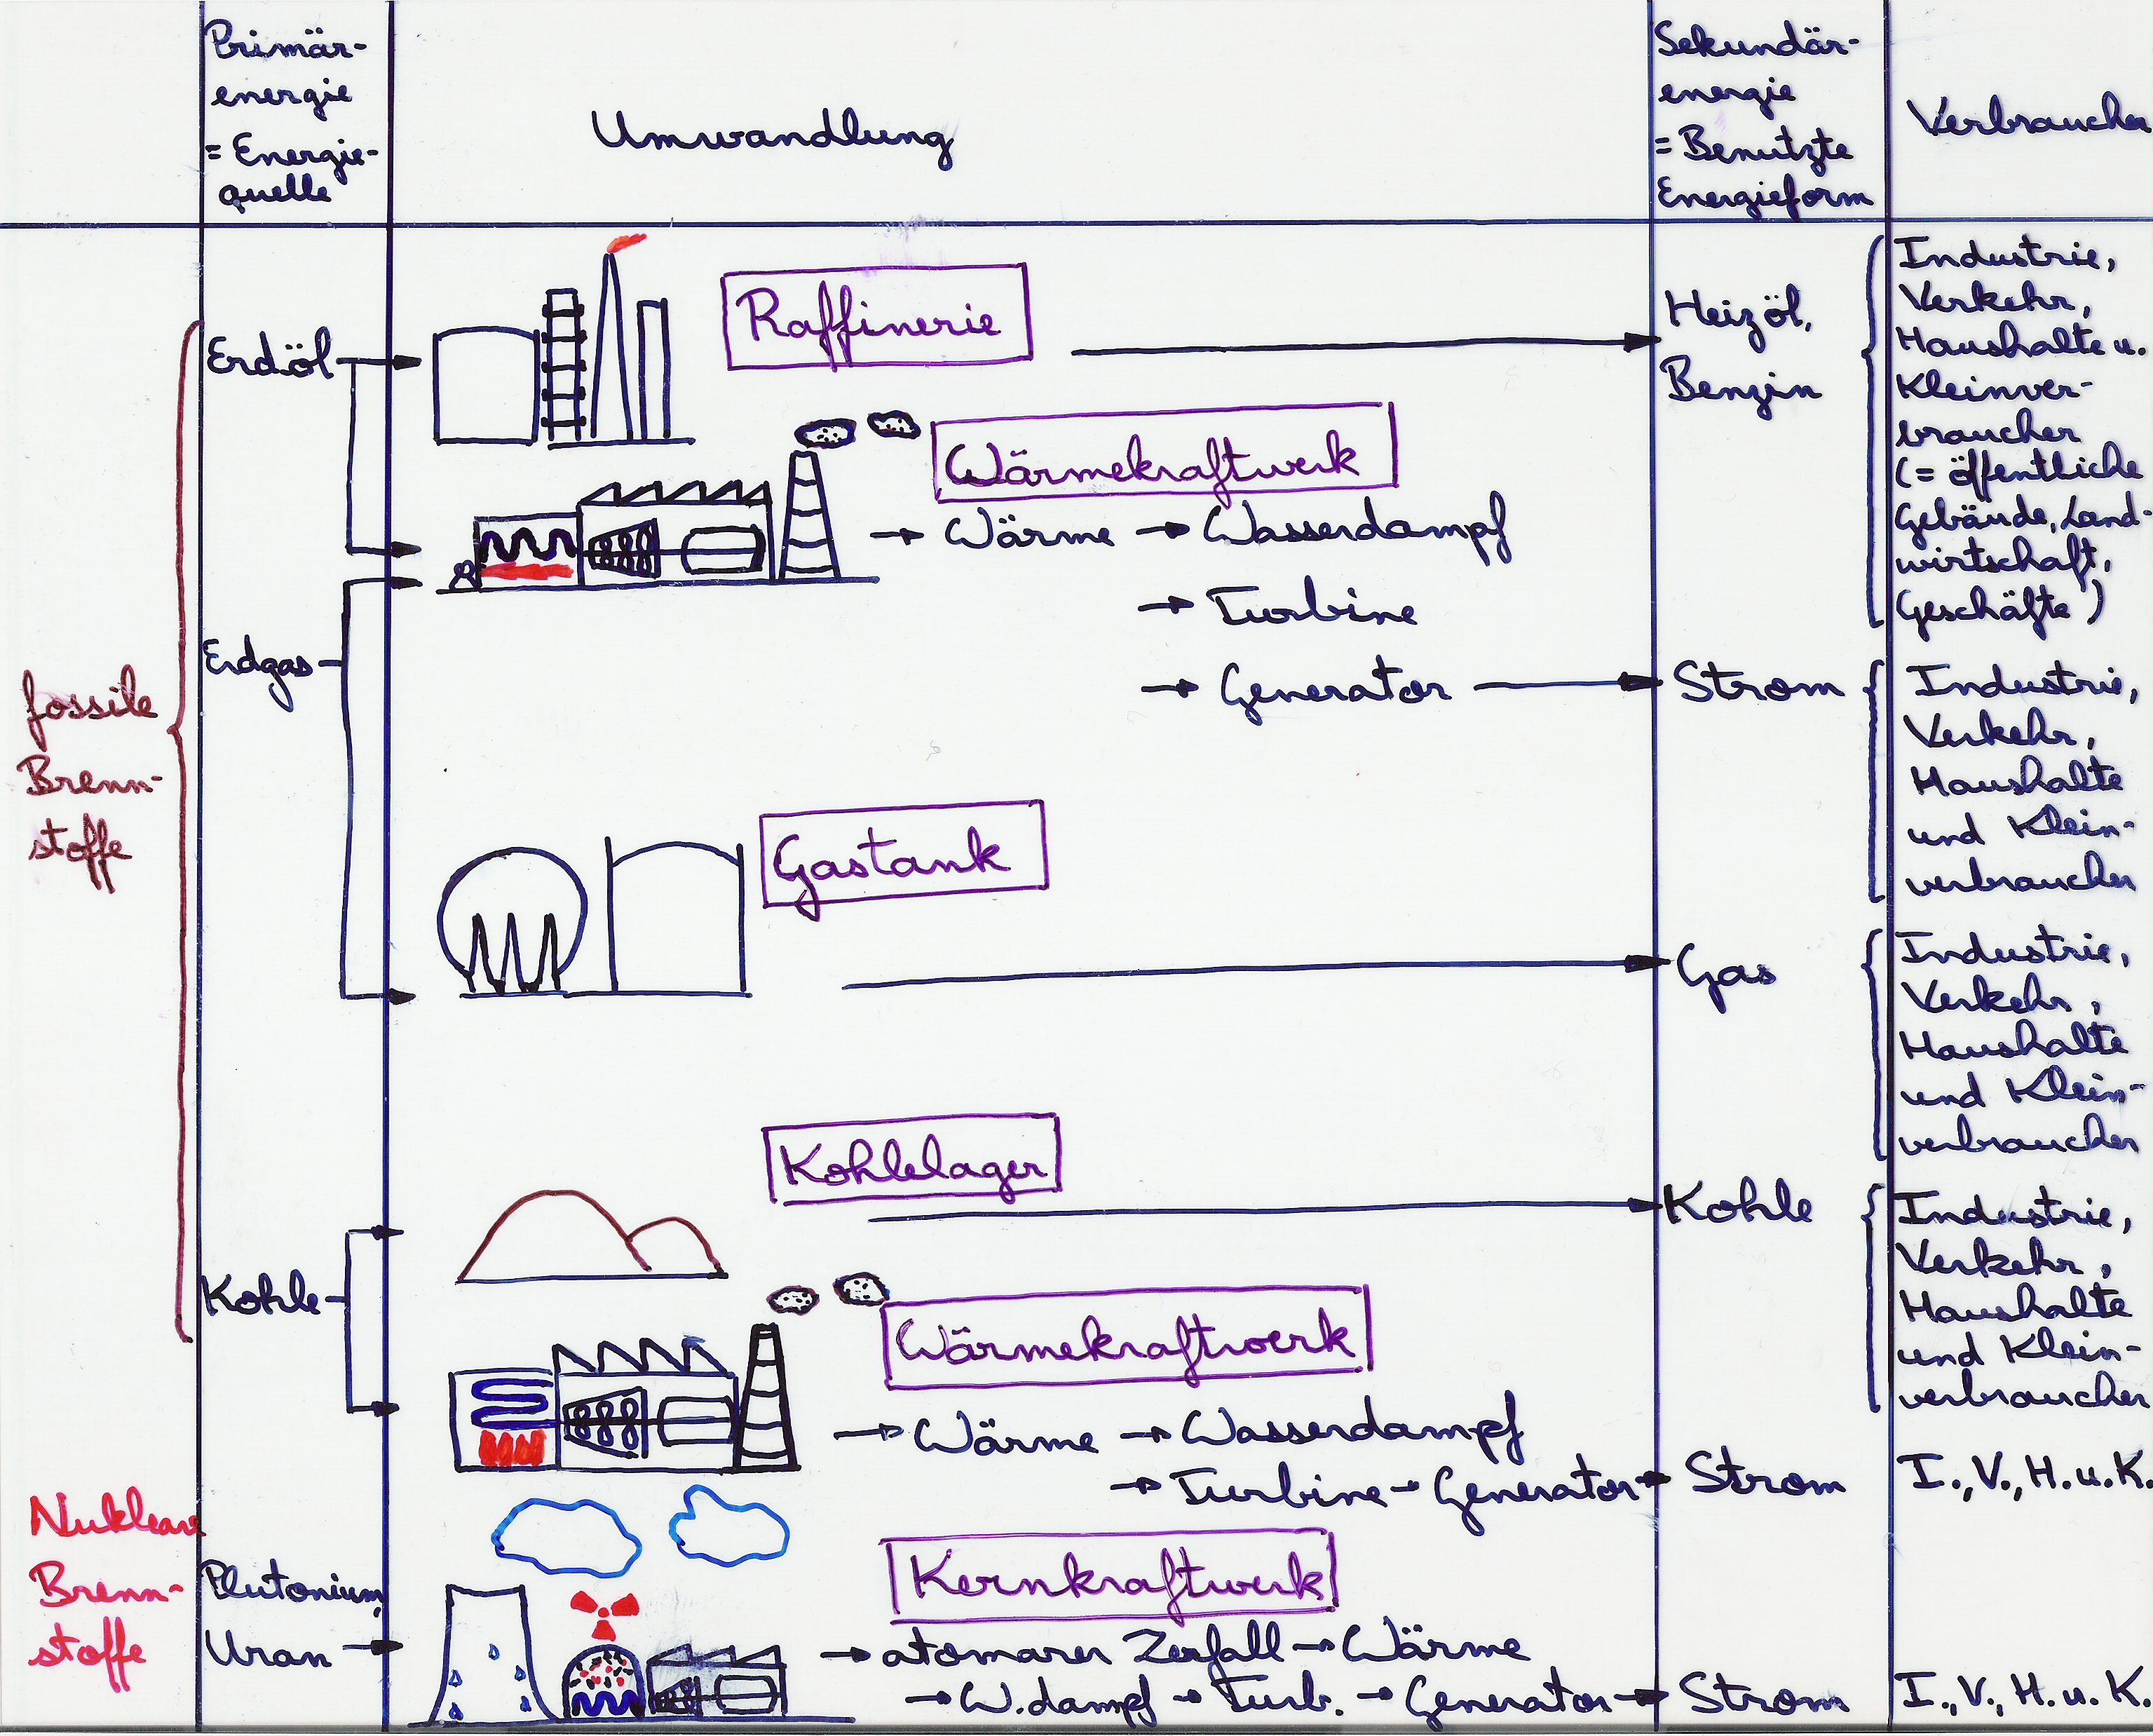 Primär-
energie
= Energie-
quelle
Umwandlung
Sekundär-
energie
= Benutzte
Energieform
Verbraucher
fossile
Brenn-
stoffe
Erdöl
Raffinerie
Heizöl,
Benzin
Industrie,
Verkehr,
Haushalte u.
Kleinver-
braucher
(= öffentliche
Gebäude, Land-
wirtschaft,
Geschäfte)
Wärmekraftwerk
→ Wärme → Wasserdampf
→ Turbine
→ Generator
Strom
Industrie,
Verkehr,
Haushalte
und Klein-
verbraucher
Erdgas
Gastank
Gas
Industrie,
Verkehr,
Haushalte
und Klein-
verbraucher
Kohle
Kohlelager
Kohle
Industrie,
Verkehr,
Haushalte
und Klein-
verbraucher
Wärmekraftwerk
→ Wärme → Wasserdampf
→ Turbine → Generator →
Strom
I., V., H. u. K.
Nukleare
Brenn-
stoffe
Plutonium,
Uran
Kernkraftwerk
→ atomarer Zerfall → Wärme
→ W.dampf → Turb. → Generator →
Strom
I., V., H. u. K.